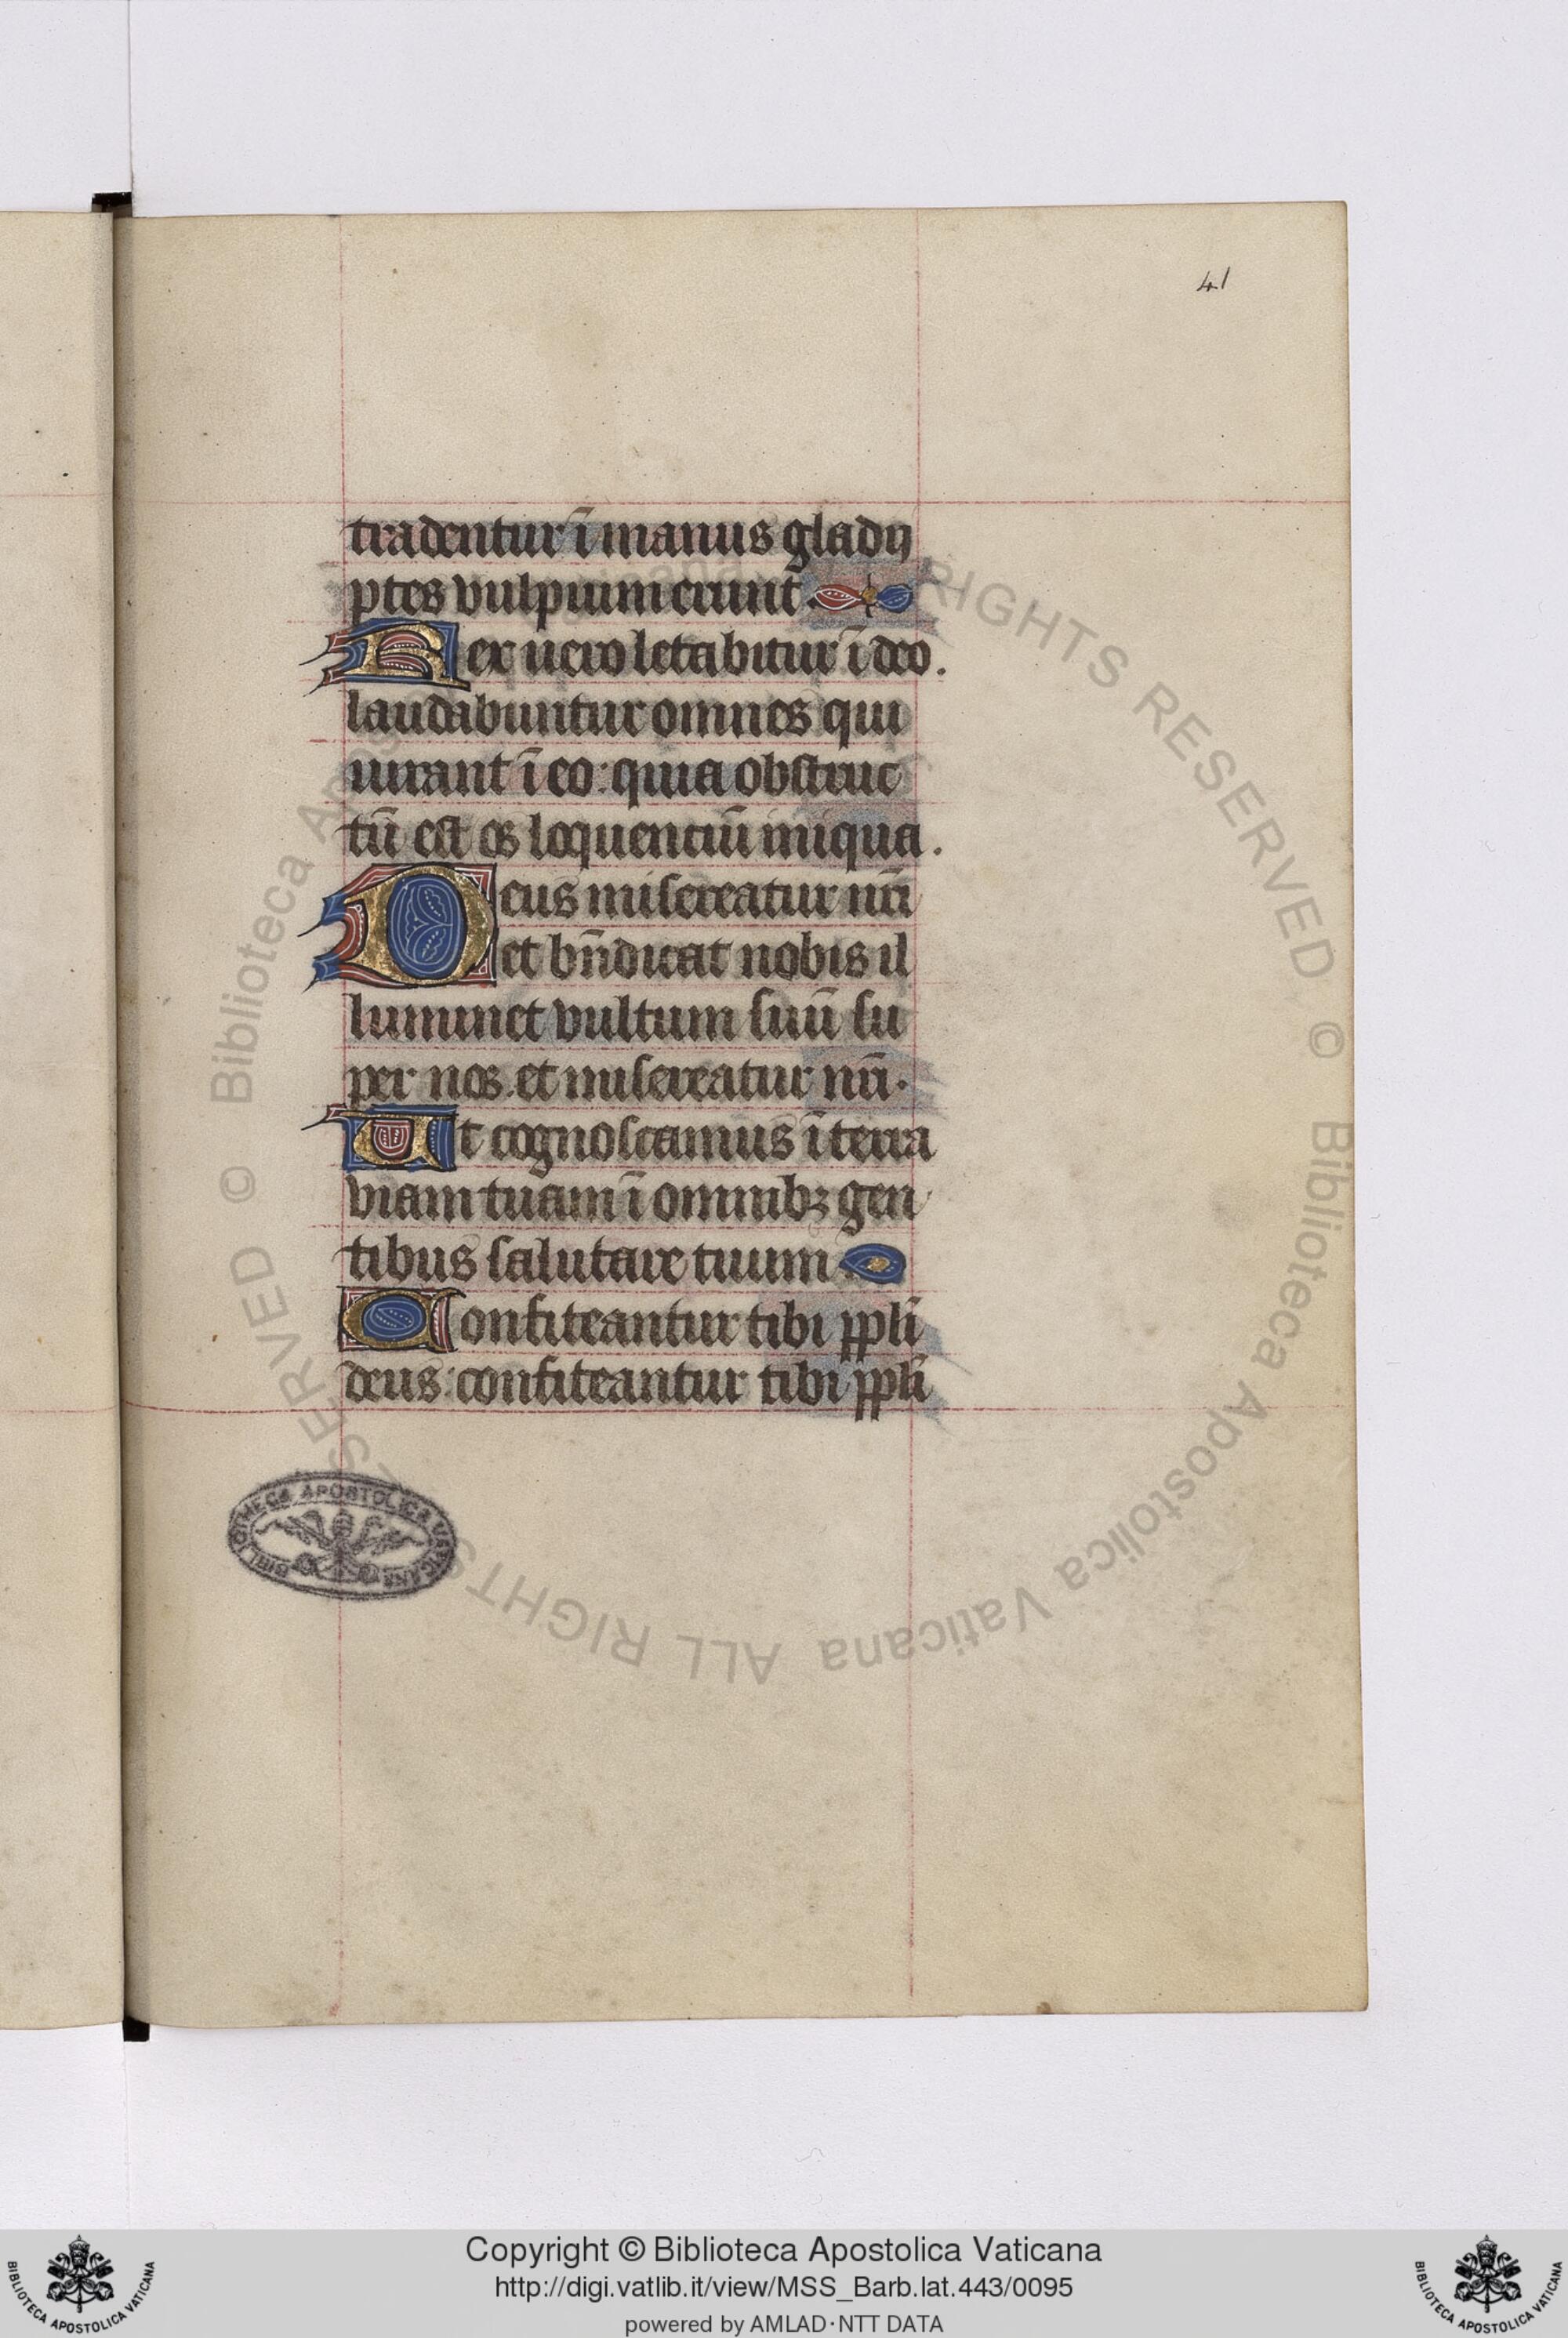 41
tradentur ī manus gladij
ꝑtes vulpium erunt.
Rex uero letabitur ī deo.
laudabuntur omnes qui
iurant ī eo: quia obstruc
tū est os loquenciū iniqua.
Deus misereatur nr̄i
et bn̄dicat nobis il
luminet vultum suū su
per nos. et misereatur nr̄i.
Ut cognoscamus ī terra
viam tuam ī omnibꝫ gen
tibus salutare tuum.
Confiteantur tibi ppl̄i
deus: confiteantur tibi ppl̄i
BIBLIOTHECA APOSTOLICA VATICANA
© Biblioteca Apostolica Vaticana ALL RIGHTS RESERVED
© Biblioteca Apostolica Vaticana ALL RIGHTS RESERVED
Copyright © Biblioteca Apostolica Vaticana
http://digi.vatlib.it/view/MSS_Barb.lat.443/0095
powered by AMLAD·NTT DATA
BIBLIOTECA APOSTOLICA VATICANA
BIBLIOTECA APOSTOLICA VATICANA